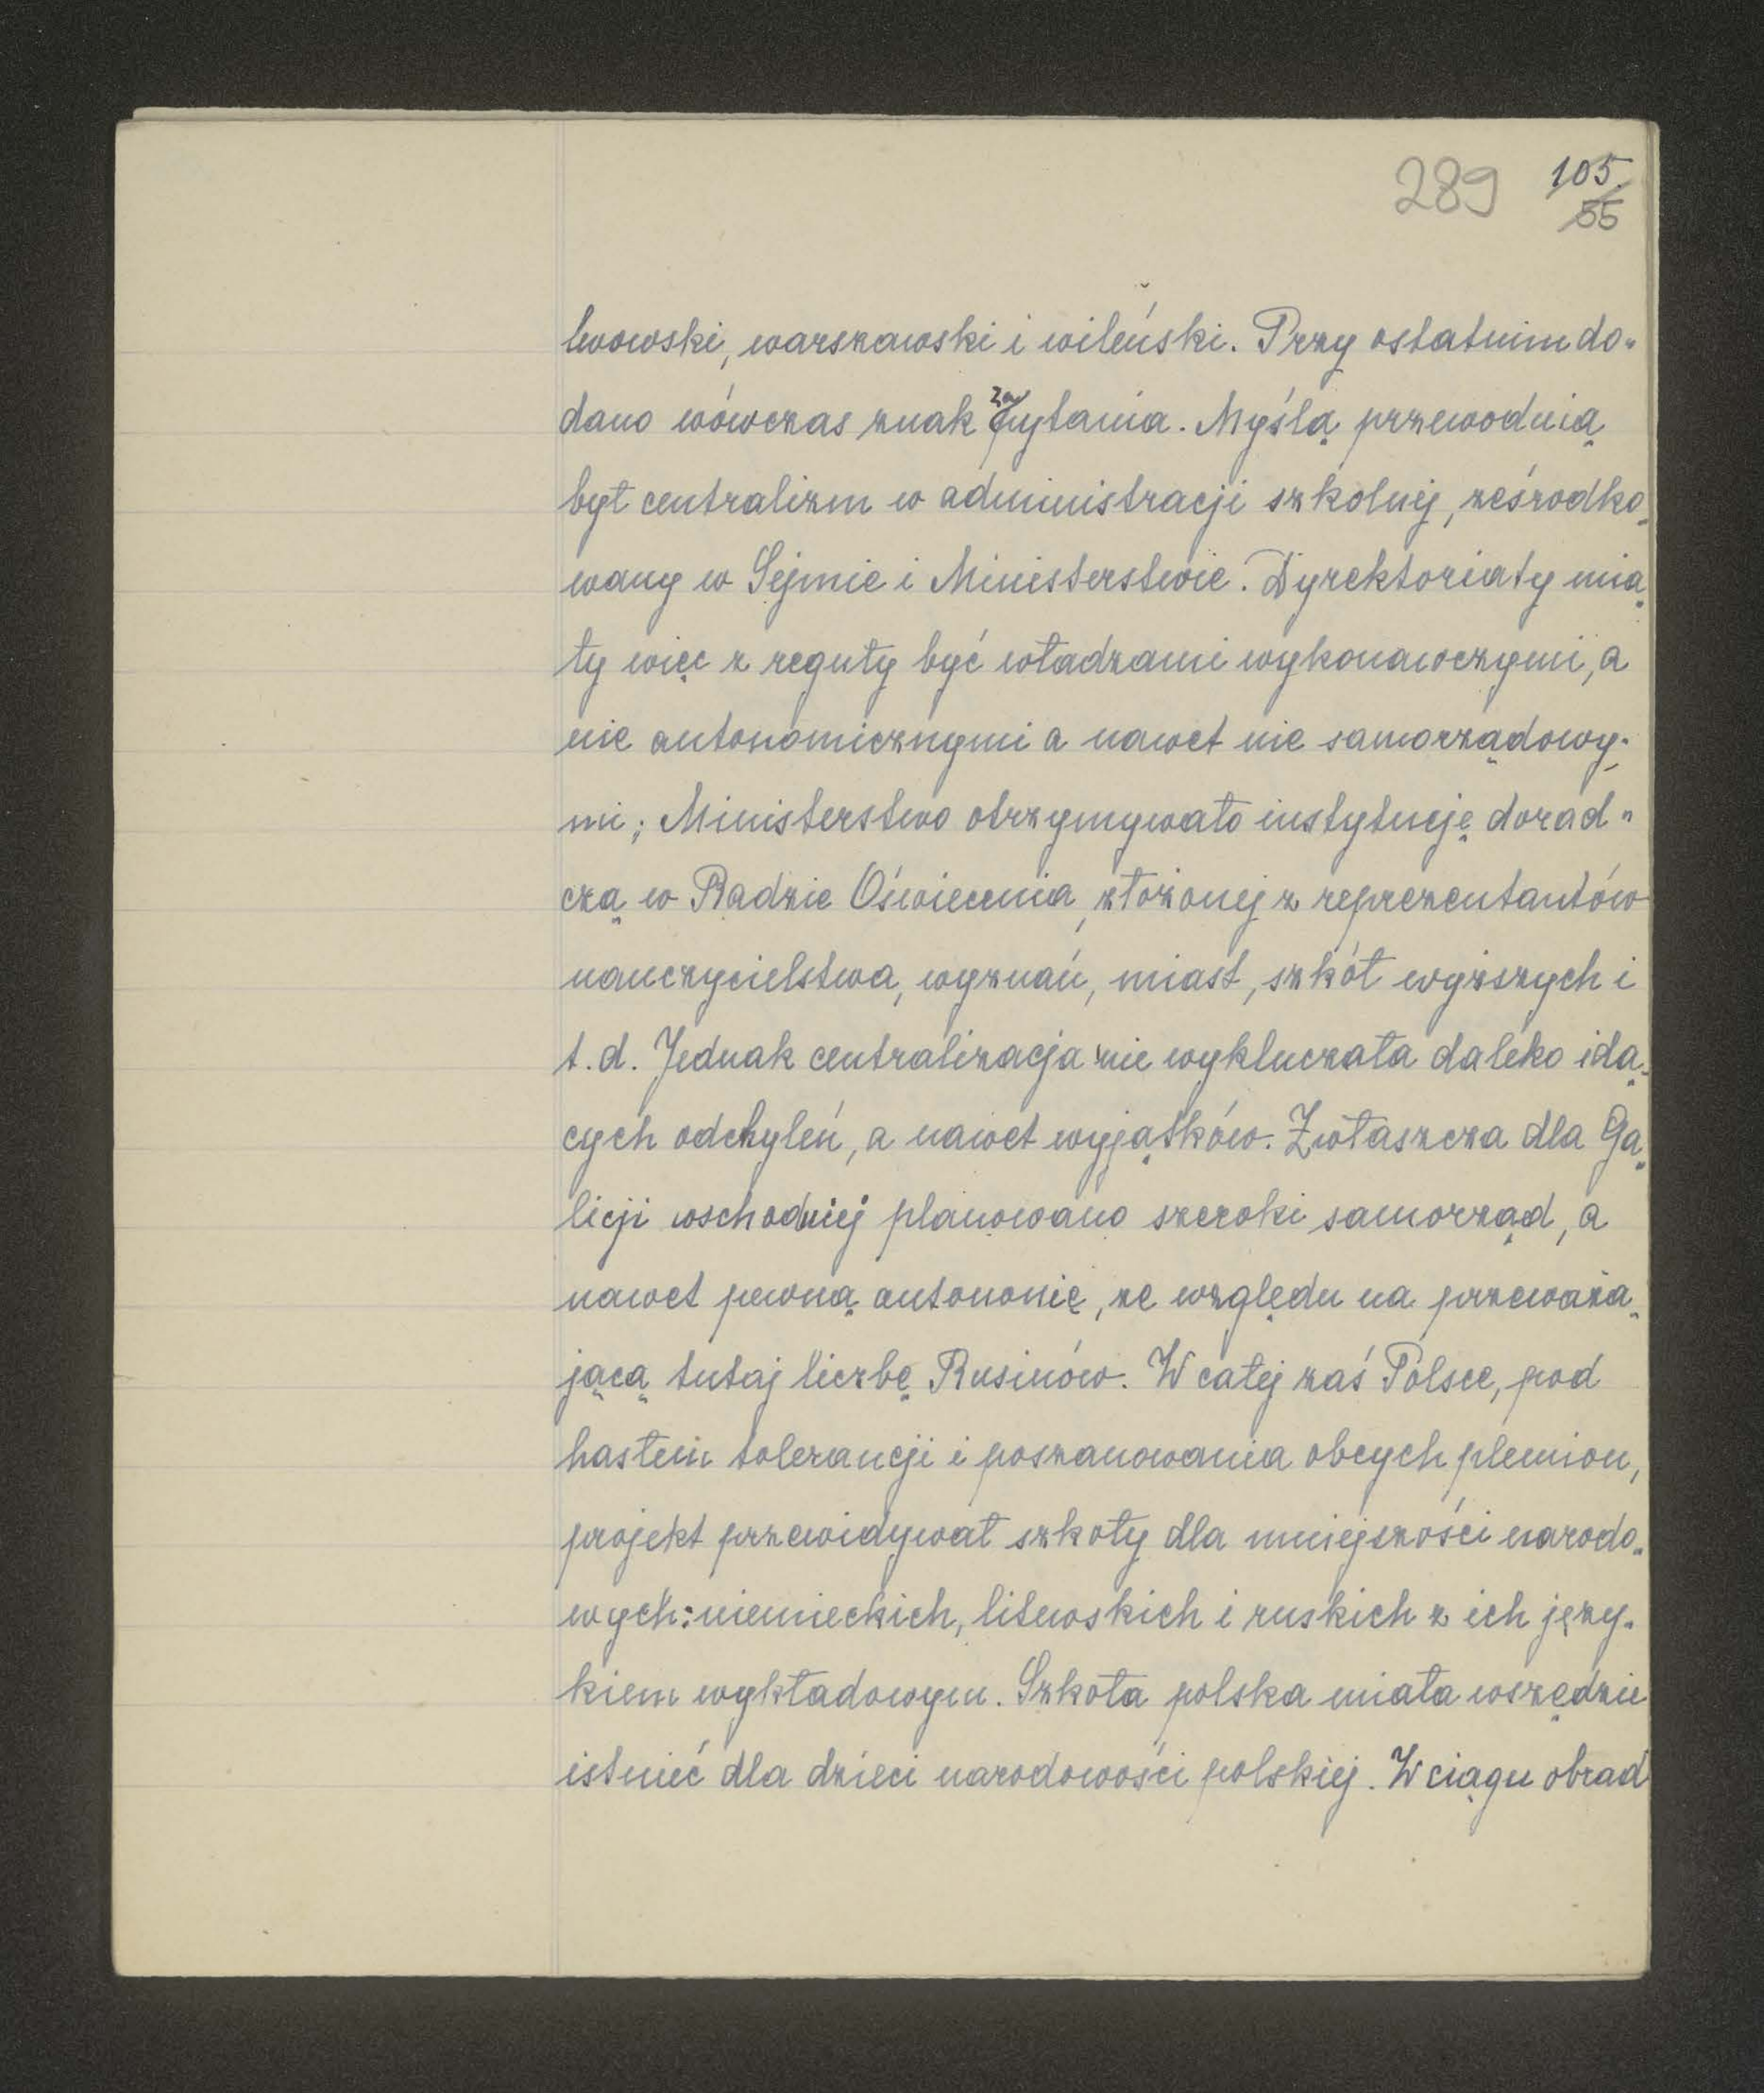 289 105.
55
lwowski, warszawski i wileński. Przy ostatnim do-
dano wówczas znak zapytania. Myślą przewodnią
był centralizm w administracji szkolnej, ześrodko-
wany w Sejmie i Ministerstwie. Dyrektoriaty mia-
ły więc z reguły być władzami wykonawczymi, a
nie autonomicznymi a nawet nie samorządowy-
mi; Ministerstwo otrzymywało instytucję dorad-
czą w Radzie Oświecenia, złożonej z reprezentantów
nauczycielstwa, wyznań, miast, szkół wyższych i
t.d. Jednak centralizacja nie wykluczała daleko idą-
cych odchyleń, a nawet wyjątków. Zwłaszcza dla Ga-
licji wschodniej planowano szeroki samorząd, a
nawet pewną autonomię, ze względu na przeważa-
jącą tutaj liczbę Rusinów. W całej zaś Polsce, pod
hasłem tolerancji i poszanowania obcych plemion,
projekt przewidywał szkoły dla mniejszości narodo-
wych: niemieckich, litewskich i ruskich z ich języ-
kiem wykładowym. Szkoła polska miała wszędzie
istnieć dla dzieci narodowości polskiej. W ciągu obrad